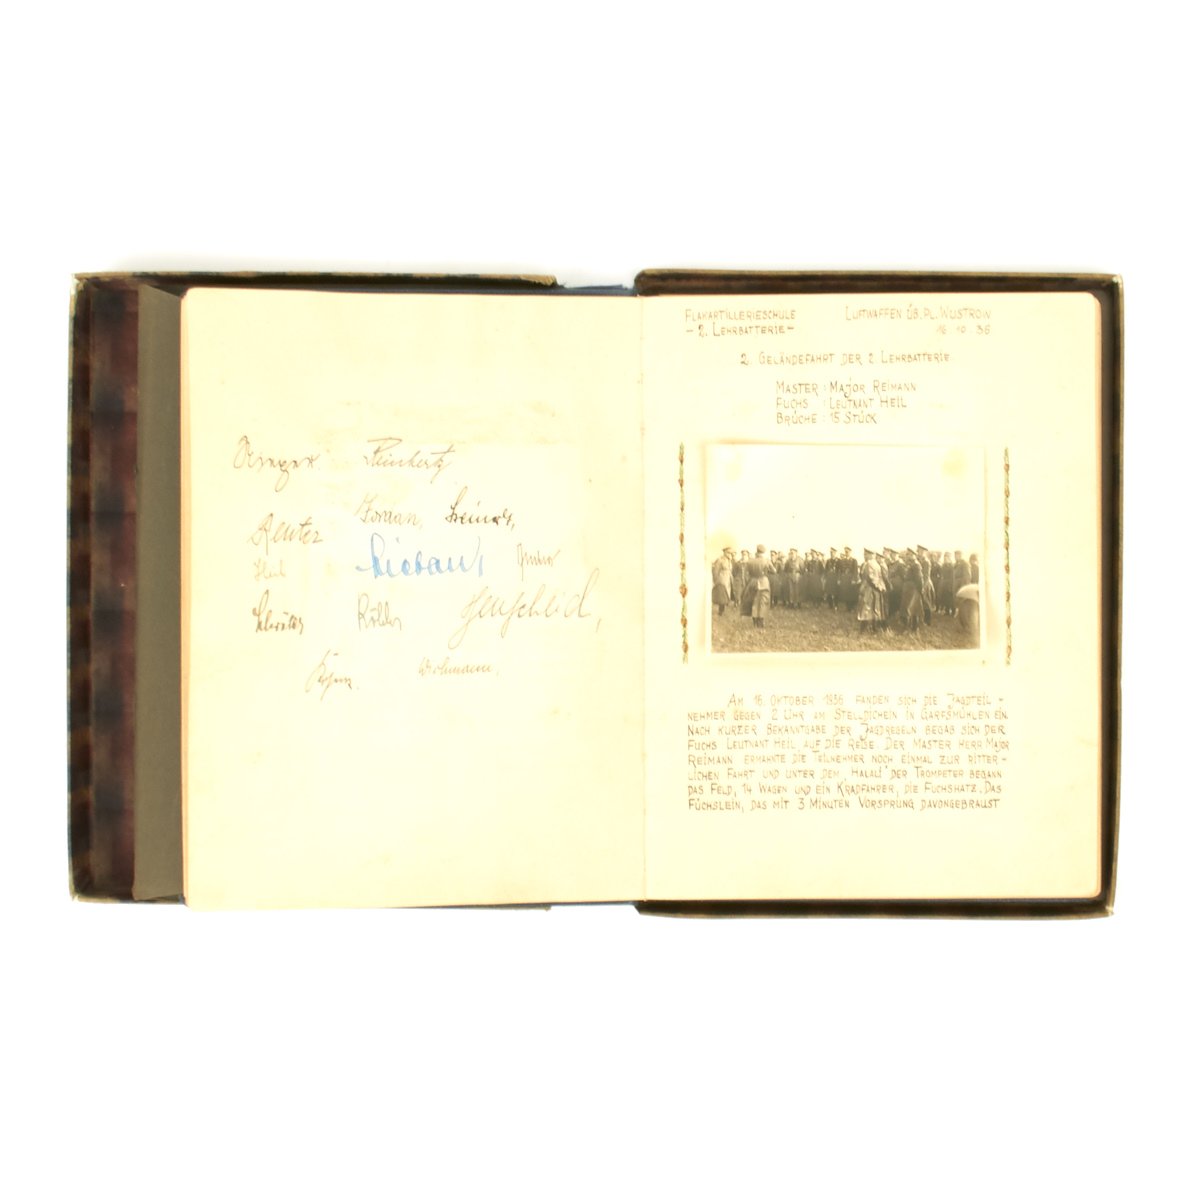 Reinhertz
Reuter Jordan,
Heil
Schröter
Wrohmann.
FLAKARTILLERIESCHULE LUFTWAFFEN ÜB. PL. WUSTROW
- 2. LEHRBATTERIE - 16. 10. 36
2. GELÄNDEFAHRT DER 2. LEHRBATTERIE.
MASTER : MAJOR REIMANN
FUCHS : LEUTNANT HEIL
BRÜCHE : 15 STÜCK
AM 16. OKTOBER 1936 FANDEN SICH DIE JAGDTEIL-
NEHMER GEGEN 2 UHR AM STELLDICHEIN IN GARFSMÜHLEN EIN.
NACH KURZER BEKANNTGABE DER JAGDREGELN BEGAB SICH DER
FUCHS LEUTNANT HEIL, AUF DIE REISE. DER MASTER HERR MAJOR
REIMANN ERMAHNTE DIE TEILNEHMER NOCH EINMAL ZUR RITTER-
LICHEN FAHRT UND UNTER DEM „HALALI" DER TROMPETER BEGANN
DAS FELD, 14 WAGEN UND EIN KRADFAHRER, DIE FUCHSHATZ. DAS
FÜCHSLEIN, DAS MIT 3 MINUTEN VORSPRUNG DAVONGEBRAUST